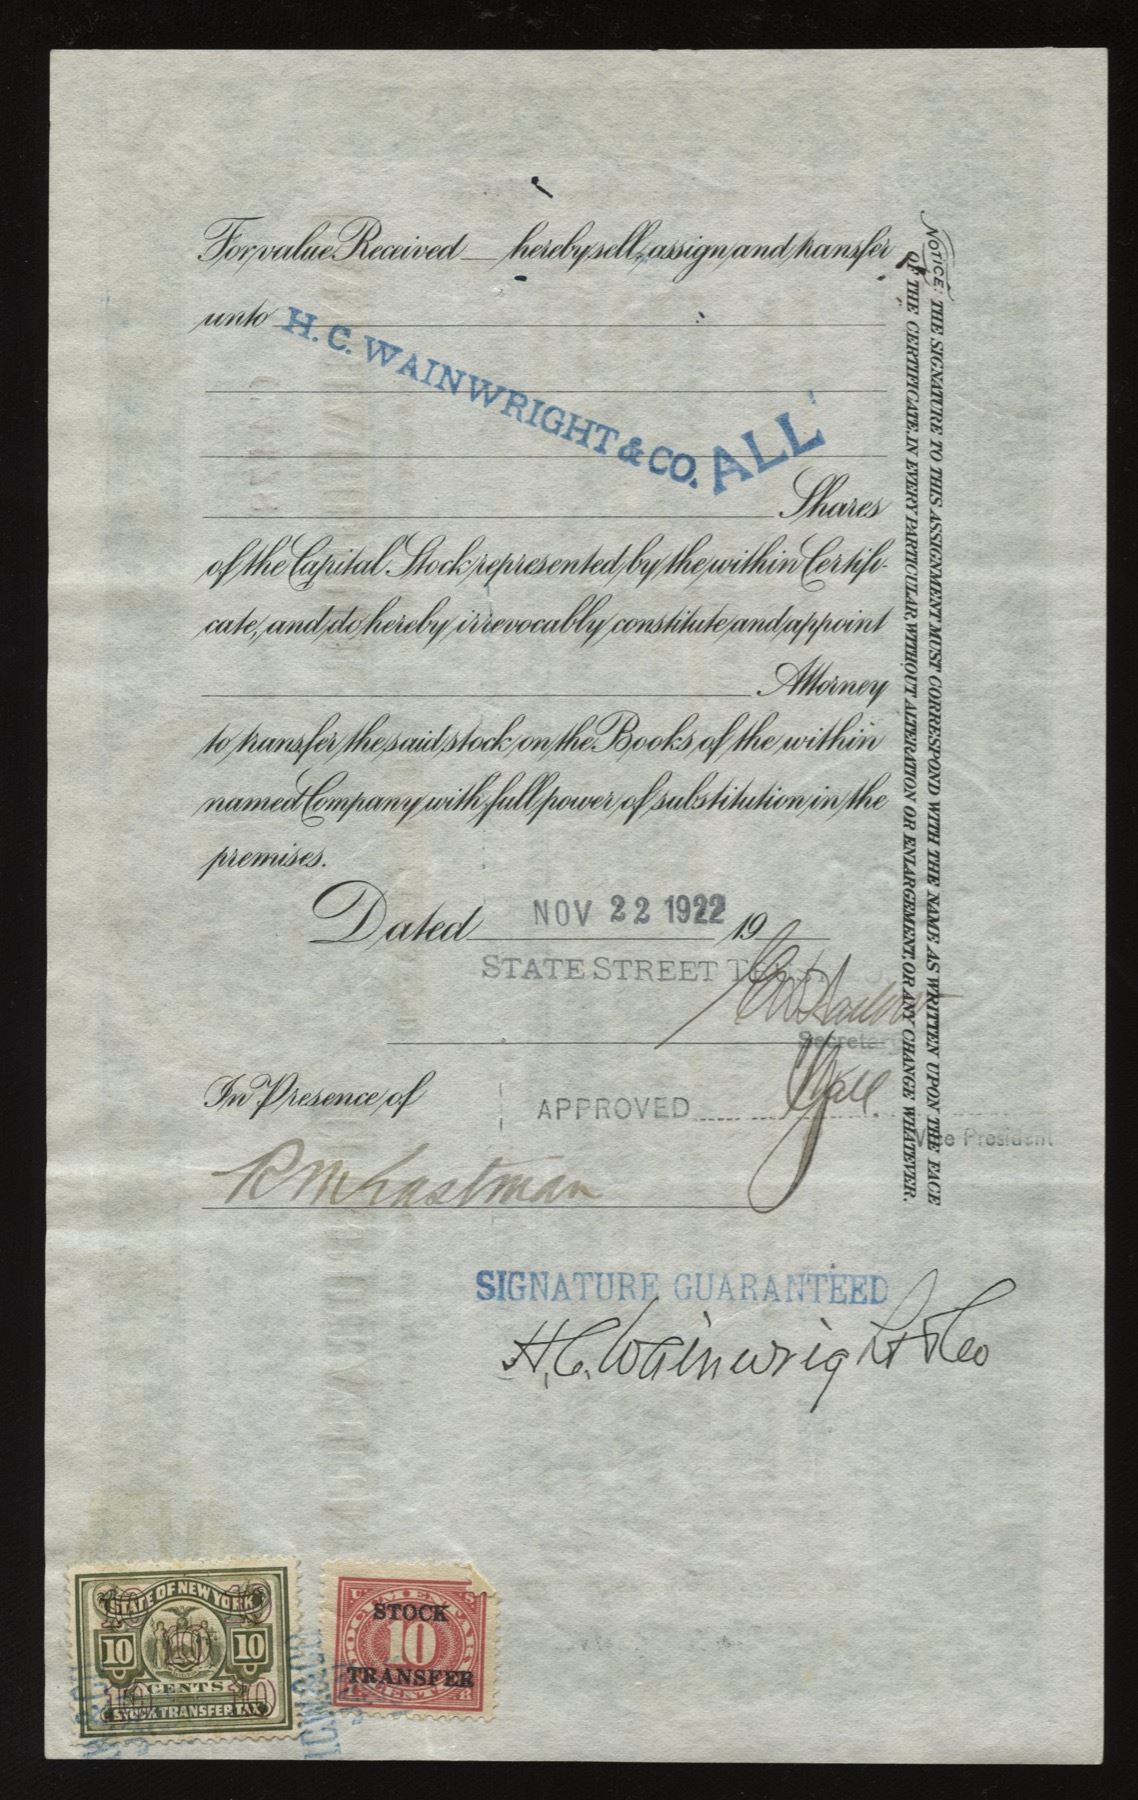 For value Received hereby sell, assign and transfer
unto
H. C. WAINWRIGHT & CO. ALL
Shares
of the Capital Stock represented by the within Certifi-
cate, and do hereby irrevocably constitute and appoint
Attorney
to transfer the said stock on the Books of the within
named Company with full power of substitution in the
premises.
Dated NOV 22 1922 19
STATE STREET
Secretary
In Presence of
APPROVED
Vice President
R M Eastman
SIGNATURE GUARANTEED
H. C. Wainwright & Co
NOTICE: THE SIGNATURE TO THIS ASSIGNMENT MUST CORRESPOND WITH THE NAME AS WRITTEN UPON THE FACE
OF THE CERTIFICATE, IN EVERY PARTICULAR, WITHOUT ALTERATION OR ENLARGEMENT, OR ANY CHANGE WHATEVER.
STATE OF NEW YORK
10 10 10
CENTS
STOCK TRANSFER TAX
STOCK
10
TRANSFER